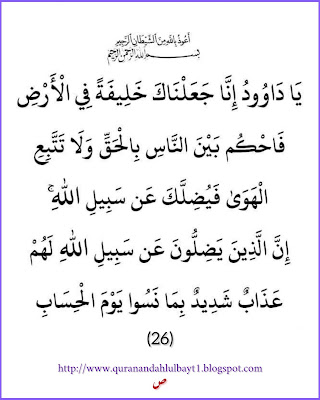 أعوذ بالله من الشيطان الرجيم
بسم الله الرحمن الرحيم
يَا دَاوُودُ إِنَّا جَعَلْنَاكَ خَلِيفَةً فِي الْأَرْضِ
فَاحْكُم بَيْنَ النَّاسِ بِالْحَقِّ وَلَا تَتَّبِعِ
الْهَوَىٰ فَيُضِلَّكَ عَن سَبِيلِ اللَّهِ ۚ
إِنَّ الَّذِينَ يَضِلُّونَ عَن سَبِيلِ اللَّهِ لَهُمْ
عَذَابٌ شَدِيدٌ بِمَا نَسُوا يَوْمَ الْحِسَابِ
(26)
http://www.quranandahlulbayt1.blogspot.com
ص